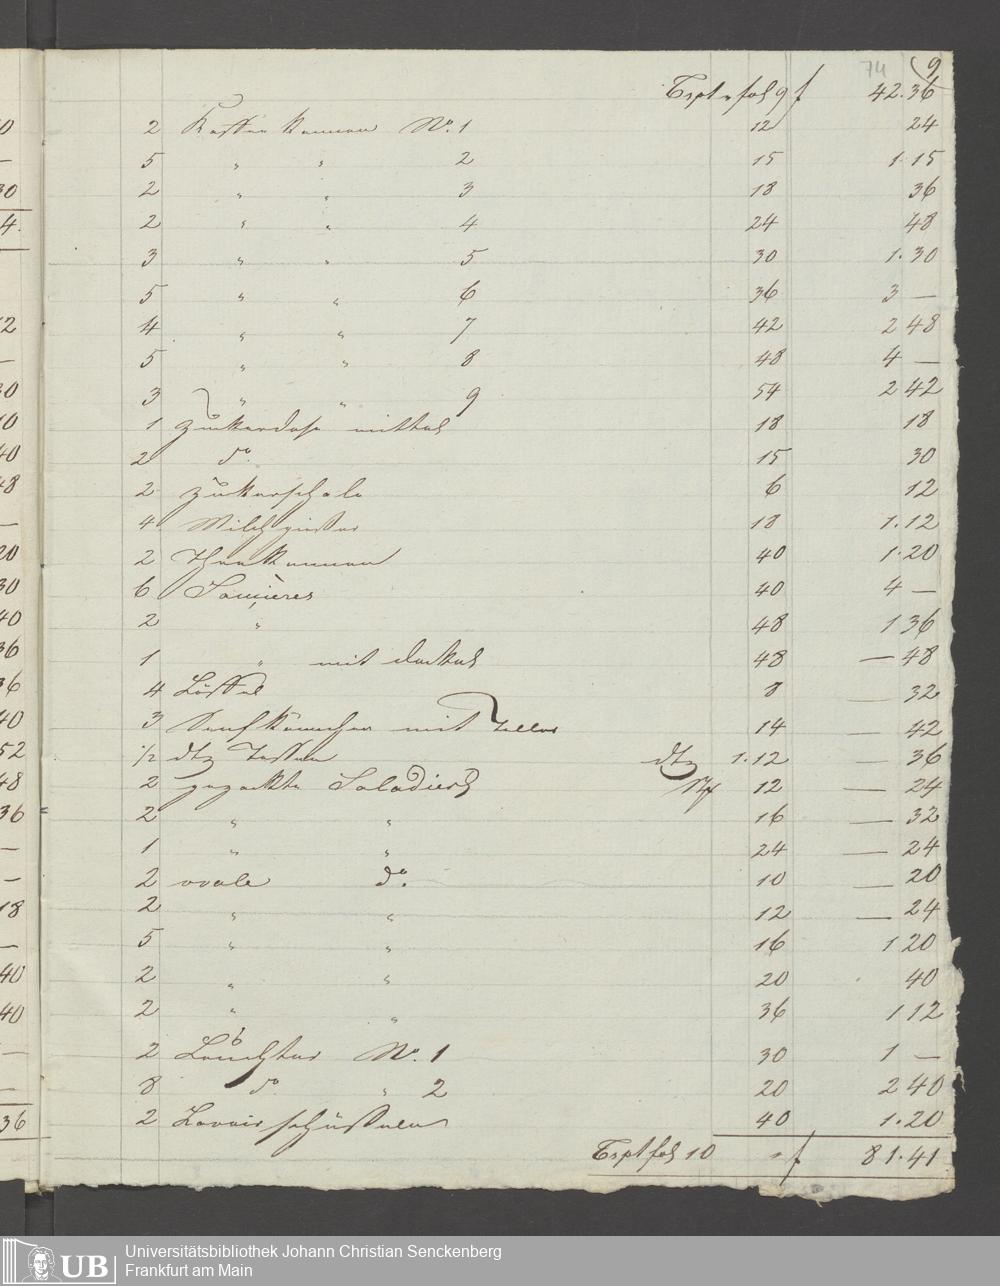 74 9
Trspt. fol 9 f 42.36
2 Kaffee Kannen No. 1 12 24
5 " " 2 15 1.15
2 " " 3 18 36
2 " " 4 24 48
3 " " 5 30 1.30
5 " " 6 36 3 —
4 " " 7 42 2 48
5 " " 8 48 4 —
3 " " 9 54 2 42
1 Zuckerdose mittel 18 18
2 do. 15 30
2 Zukerschale 6 12
4 Milchgiesser 18 1.12
2 Theekannen 40 1.20
6 Saucieres 40 4 —
2 " 48 1 36
1 " mit Deckel 48 — 48
4 Löffel 8 — 32
3 Senfkännchen mit Teller 14 — 42
1/2 dtz Tassen dtz 1.12 — 36
2 gezackte Saladiers 12 — 24
2 " " 16 — 32
1 " " 24 — 24
2 ovale do. 10 — 20
2 " " 12 — 24
5 " " 16 1 20
2 " " 20 40
2 " " 36 1 12
2 Leuchter No. 1 30 1 —
8 do " 2 20 2 40
2 Lavoir schüsseln 40 1.20
Trspt fol 10 " f 81.41
0
—
30
4.
12
—
30
10
40
48
—
20
30
40
36
36
40
52
48
36
—
—
18
—
40
40
—
—
36
UB
Universitätsbibliothek Johann Christian Senckenberg
Frankfurt am Main